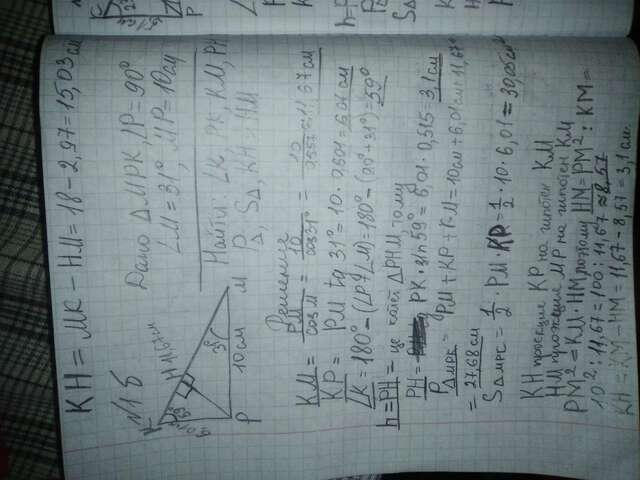 KH = MK - HM = 18 - 2,97 = 15,03 см
№1 б
Дано ΔMPK, ∠P = 90°
∠M = 31°, MP = 10 см
Найти: ∠K, PK, KM, PH
P Δ, S Δ, KH, HM
K
H
31°
10 см
P
M
Решение
KM = PM / cos M = 10 / cos 31° = 10 / 0,857 = 11,67 см
KP = PM tg 31° = 10 · 0,601 = 6,01 см
∠K = 180° - (∠P + ∠M) = 180° - (90° + 31°) = 59°
h = PH = це катет ΔPHM, тому
PH = PK · sin 59° = 6,01 · 0,515 = 3,1 см
P ΔMPK = PM + KP + KM = 10 см + 6,01 см + 11,67
= 27,68 см
S ΔMPC = 1/2 · PM · KP = 1/2 · 10 · 6,01 = 30,05 см²
KH проекция KP на гипотен KM
HM проекция MP на гипотен KM
PM² = KM · HM поэтому HM = PM² : KM =
10² : 11,67 = 100 : 11,67 ≈ 8,57
KH = KM - HM = 11,67 - 8,57 = 3,1 см